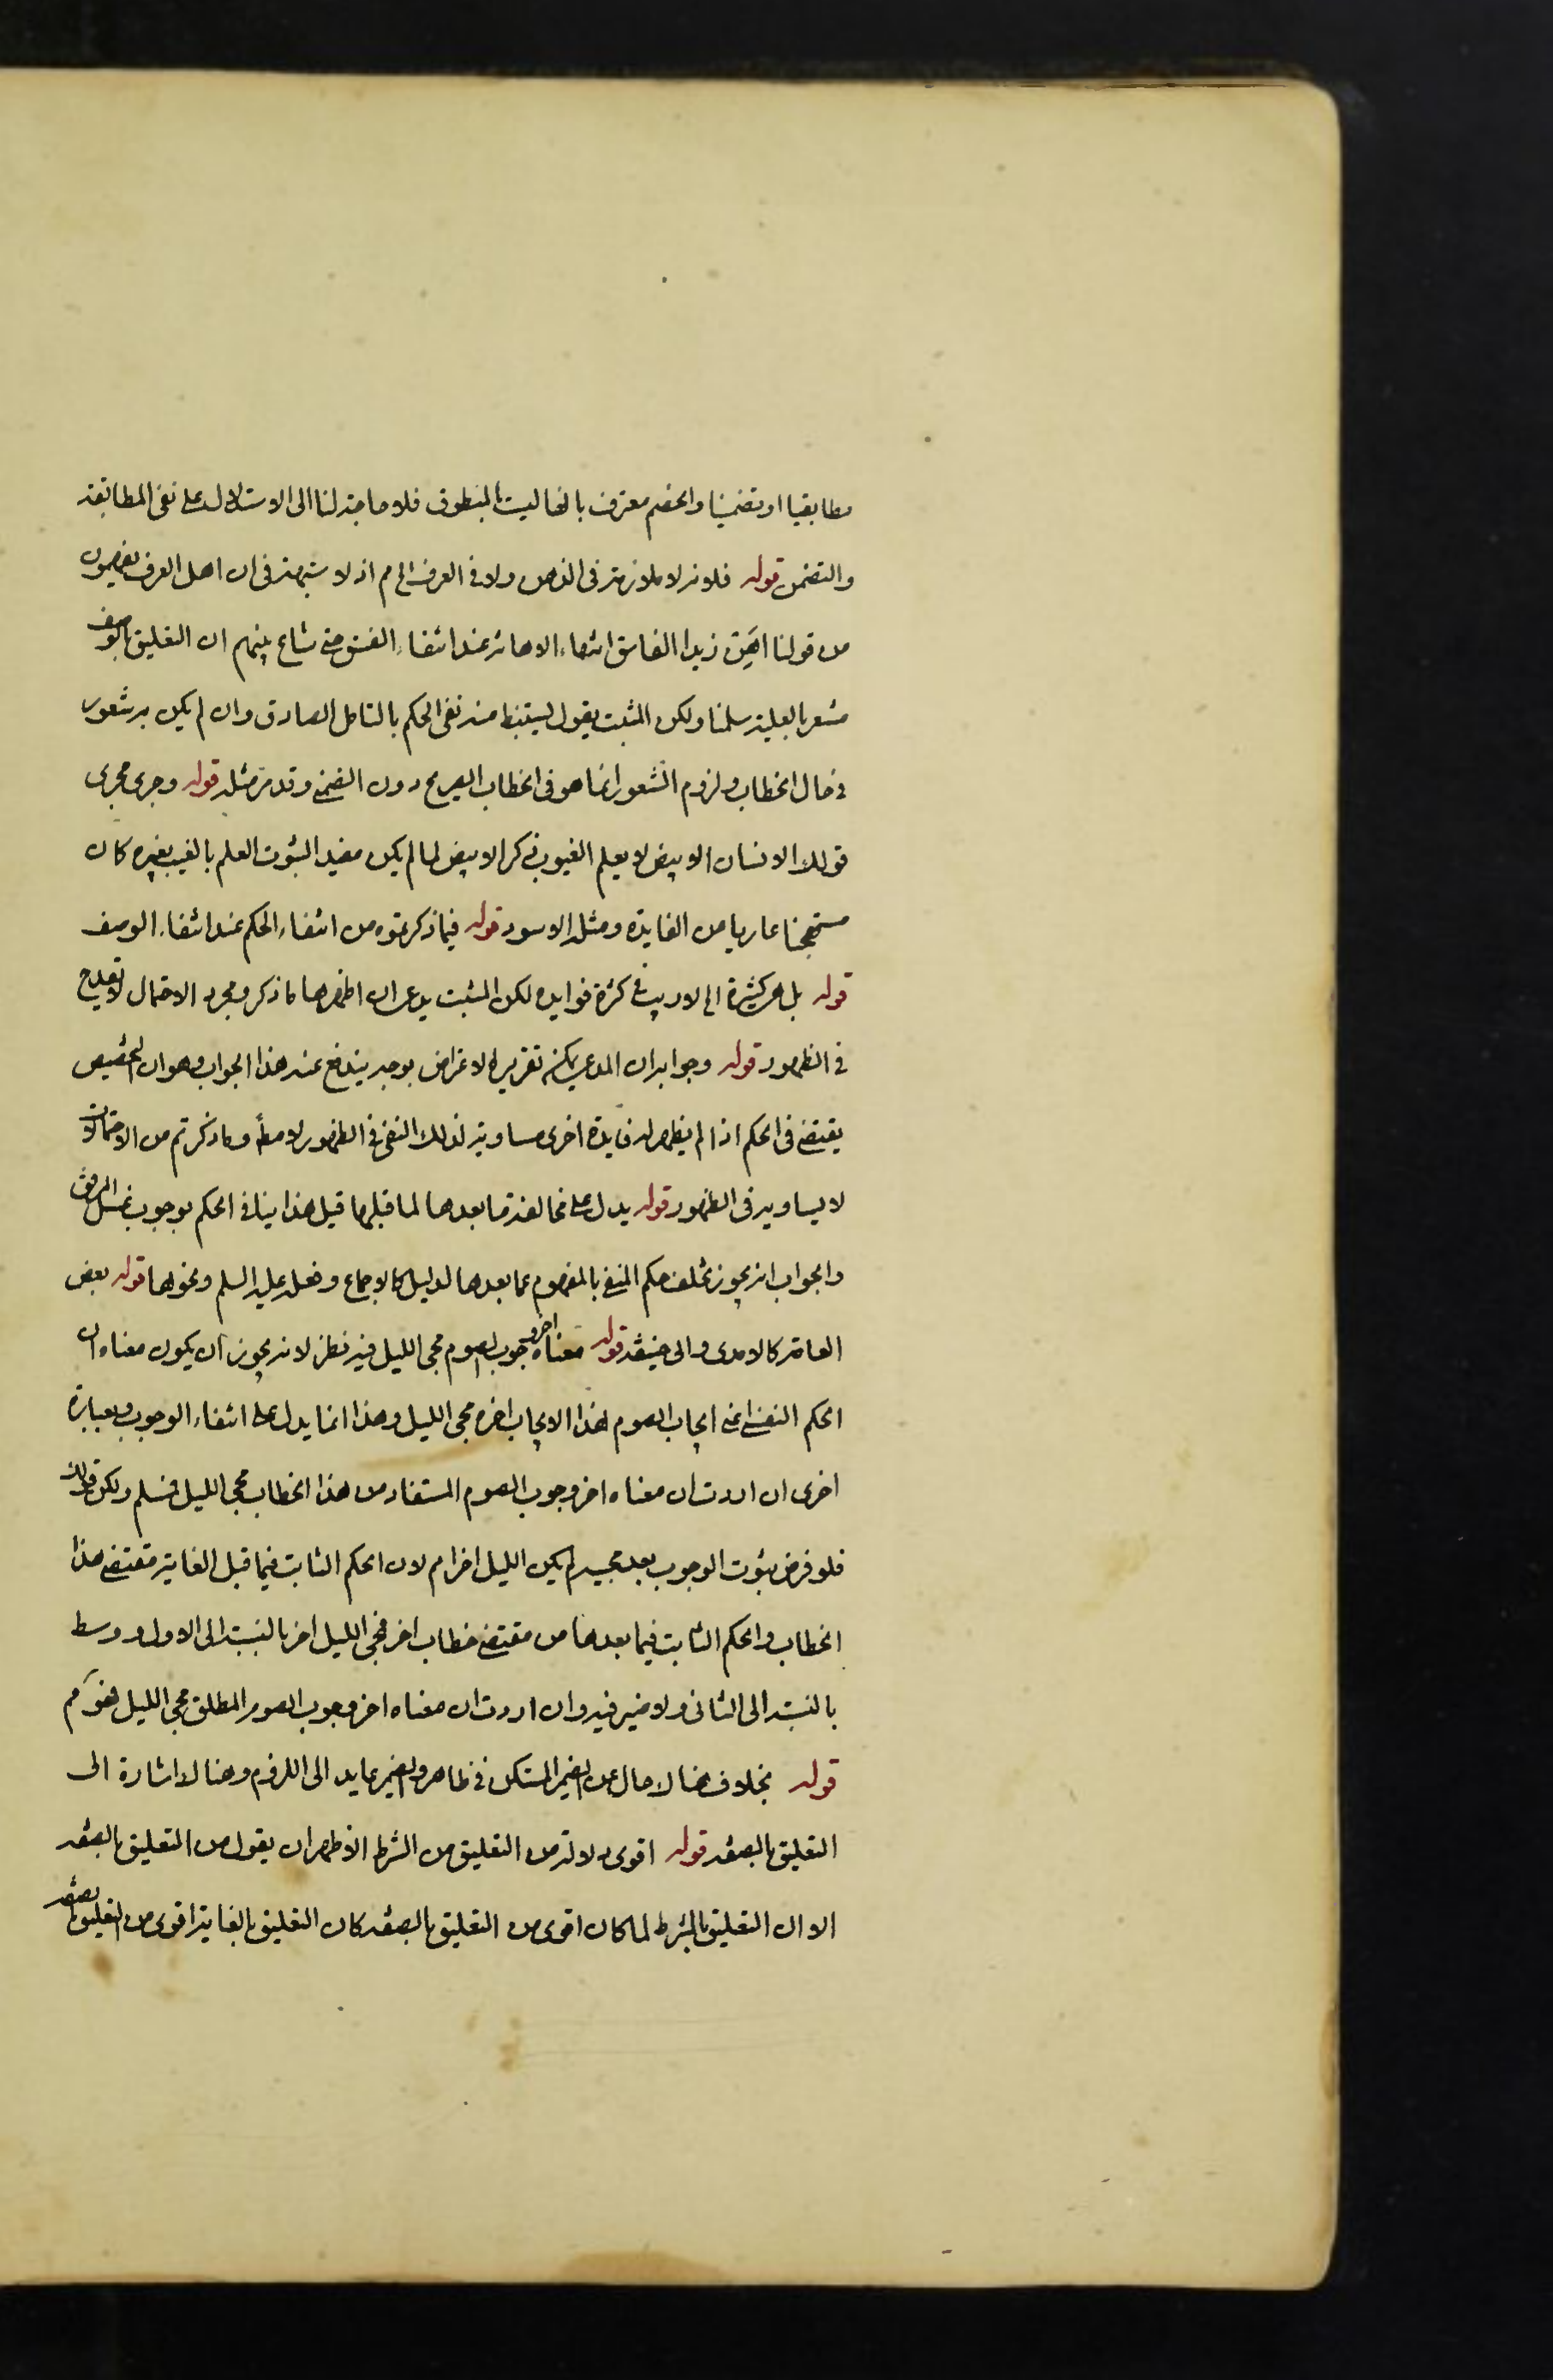 مطابقيا او تضمنيا والخصم معترف بانها ليست بالمنطوق فلا حاجة لنا الى الاستدلال على نفى المطابقة
والتضمن قوله فلانه لا ملازمة فى الذهن ولا فى العرف الخ م اذ لا شبهة فى ان اهل العرف يفهمون
من قولنا اهِن زيدا الفاسق انتهاء الاهانة عند انتفاء الفسق حتى شاع بينهم ان التعليق بالوصف
مشعر بالعلية سلمنا ولكن المثبت يقول يستنبط منه نفى الحكم بالتامل الصادق وان لم يكن به شعور
فى حال الخطاب ولزوم الشعور انما هو فى الخطاب الصريح دون الضمنى وقد مرّ مثله قوله وجرى مجرى
قولك الانسان الابيض لا يعلم الغيوب ذكر الابيض لما لم يكن مفيدا لثبوت العلم بالغيب لغيره كان
مستهجنا عاريا من الفايدة ومثله الاسود قوله فيما ذكرتموه من انتفاء الحكم عند انتفاء الوصف
قوله بل هى كثيرة الخ لا ريب فى كثرة فوايده لكن المثبت يدعى ان اظهرها ما ذكر ومجرد الاحتمال لا يقدح
فى الظهور قوله وجوابه ان المدعى يمكنه تقرير الاعتراض بوجه يندفع عنه هذا الجواب وهو ان التخصيص
يقتضى فى الحكم اذا لم يظهر له فايدة اخرى مساوية لذلك النفى فى الظهور لا مطا وما ذكرتم من الاحتمالات
لا يساويه فى الظهور قوله يدل على مخالفة ما بعدها لما قبلها قيل هذا ينافى الحكم بوجوب غسل المرفق
والجواب انه يجوز تخلف حكم المنفى بالمفهوم عما بعدها لدليل كالاجماع وفعله عليه السلم ونحوها قوله بعض
العامة كالامدى وابى حنيفه قوله معناه اخر وجوب الصوم مجى الليل فيه نظر لانه يجوز ان يكون معناه ان
الحكم النفسى اعنى ايجاب الصوم لهذا الايجاب اخره مجى الليل وهذا انما يدل على انتفاء الوجوب وبعبارة
اخرى ان اردت ان معناه اخر وجوب الصوم المستفاد من هذا الخطاب مجى الليل فمسلم ولكن قولك
فلو فرض ثبوت الوجوب بعد مجيه لم يكن الليل اخرا م لان الحكم الثابت فيما قبل الغاية مقتضى هذا
الخطاب والحكم الثابت فيما بعدها من مقتضى خطاب اخر فمجى الليل اخر بالنسبة الى الاول ووسط
بالنسبة الى الثانى ولا ضير فيه وان اردت ان معناه اخر وجوب الصوم المطلق مجى الليل فهو م
قوله بخلاف هنا لا حال عن الضمير المستكن فى ظاهر والضمير عايد الى اللزوم وهنالك اشارة الى
التعليق بالصفه قوله اقوى دلالة من التعليق من الشرط الاظهر ان يقول من التعليق بالصفه
الا ان التعليق بالشرط لما كان اقوى من التعليق بالصفه كان التعليق بالغاية اقوى من التعليق بالصفه